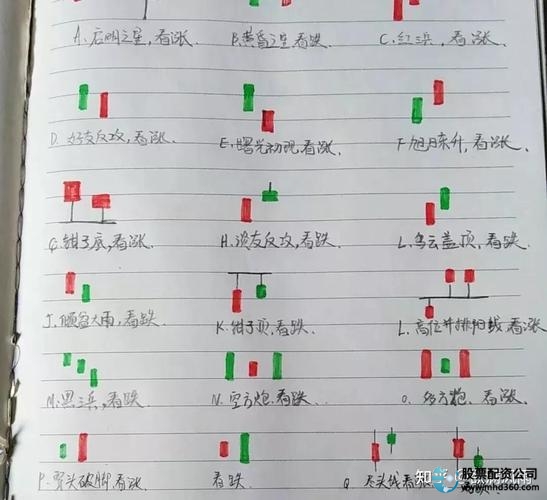 A. 启明之星,看涨.
B. 黄昏之星 看跌
C. 红三兵, 看涨
D. 好友反攻,看涨.
E. 曙光初现,看涨.
F. 旭日东升,看涨.
G. 钳子底,看涨.
H. 淡友反攻,看跌
L. 乌云盖顶,看跌
J. 倾盆大雨,看跌
K. 钳子顶,看跌.
L. 高位并排阳线 看涨
M. 黑三兵,看跌.
N. 空方炮.看跌...
O. 多方炮. 看涨.
P. 穿头破脚 看涨
看跌
Q. 尽头线 看涨
知乎
股票配资公司
www.mhd360.com